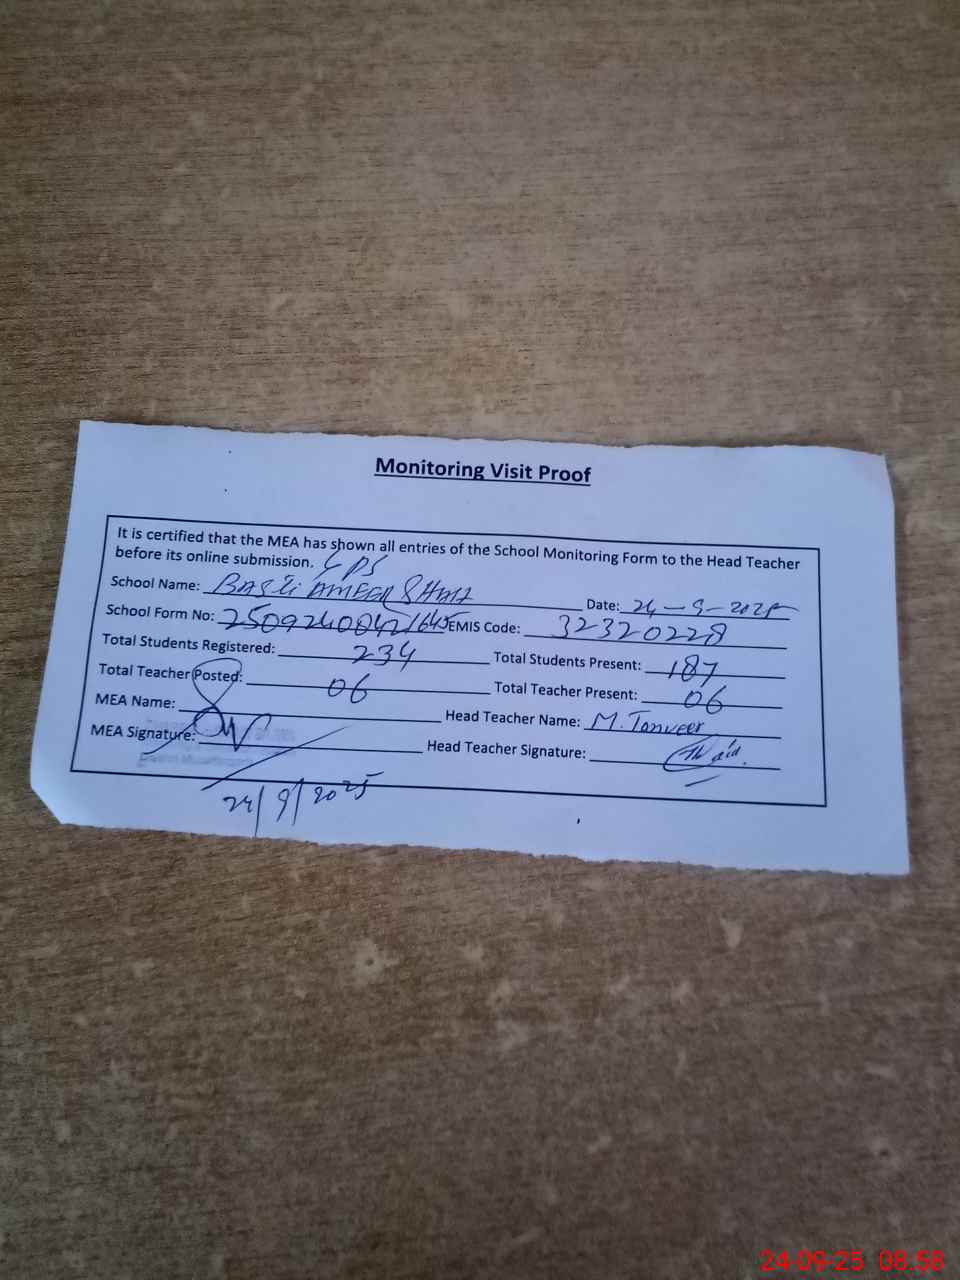 Monitoring Visit Proof
It is certified that the MEA has shown all entries of the School Monitoring Form to the Head Teacher
before its online submission. GPS
School Name: BASTI AMEER SHAH Date: 24-9-2025
School Form No: EMIS Code: 32320228
Total Students Registered: 234 Total Students Present: 187
Total Teacher Posted: 06 Total Teacher Present: 06
MEA Name: Head Teacher Name: M. Tanveer
MEA Signature: Head Teacher Signature:
24/9/2025
24-09-25 08:58